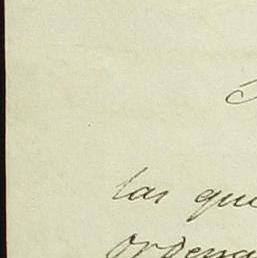 las que
ordena